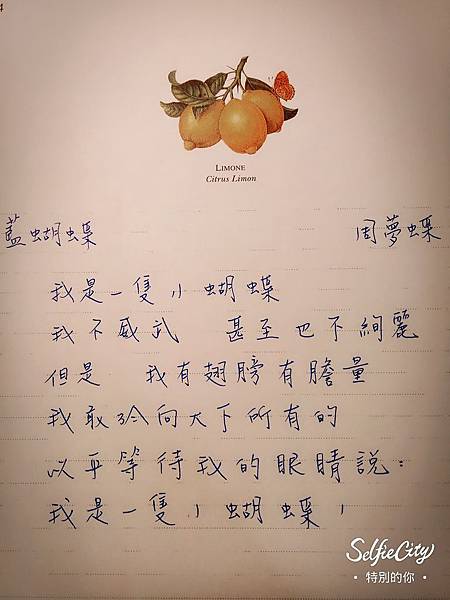 LIMONE
Citrus Limon
藍蝴蝶 周夢蝶
我是一隻小蝴蝶
我不威武 甚至也不絢麗
但是 我有翅膀有膽量
我敢於向天下所有的
以平等待我的眼睛說：
我是一隻小蝴蝶！
SelfieCity
• 特別的你 •